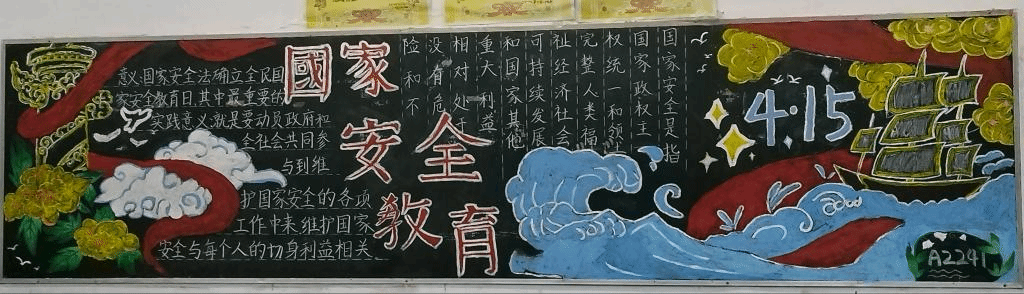 國家
安全
教育
意义:国家安全法确立全民国
家安全教育日,其中最重要的
实践意义就是要动员政府和
全社会共同参
与到维
护国家安全的各项
工作中来,维护国家
安全与每个人的切身利益相关
国家安全是指
国家政权主
权统一和领
完整人类福
祉经济社会
可持续发展
和国家其他
重大利益
相对处于
没有危
险和不
4·15
A2241